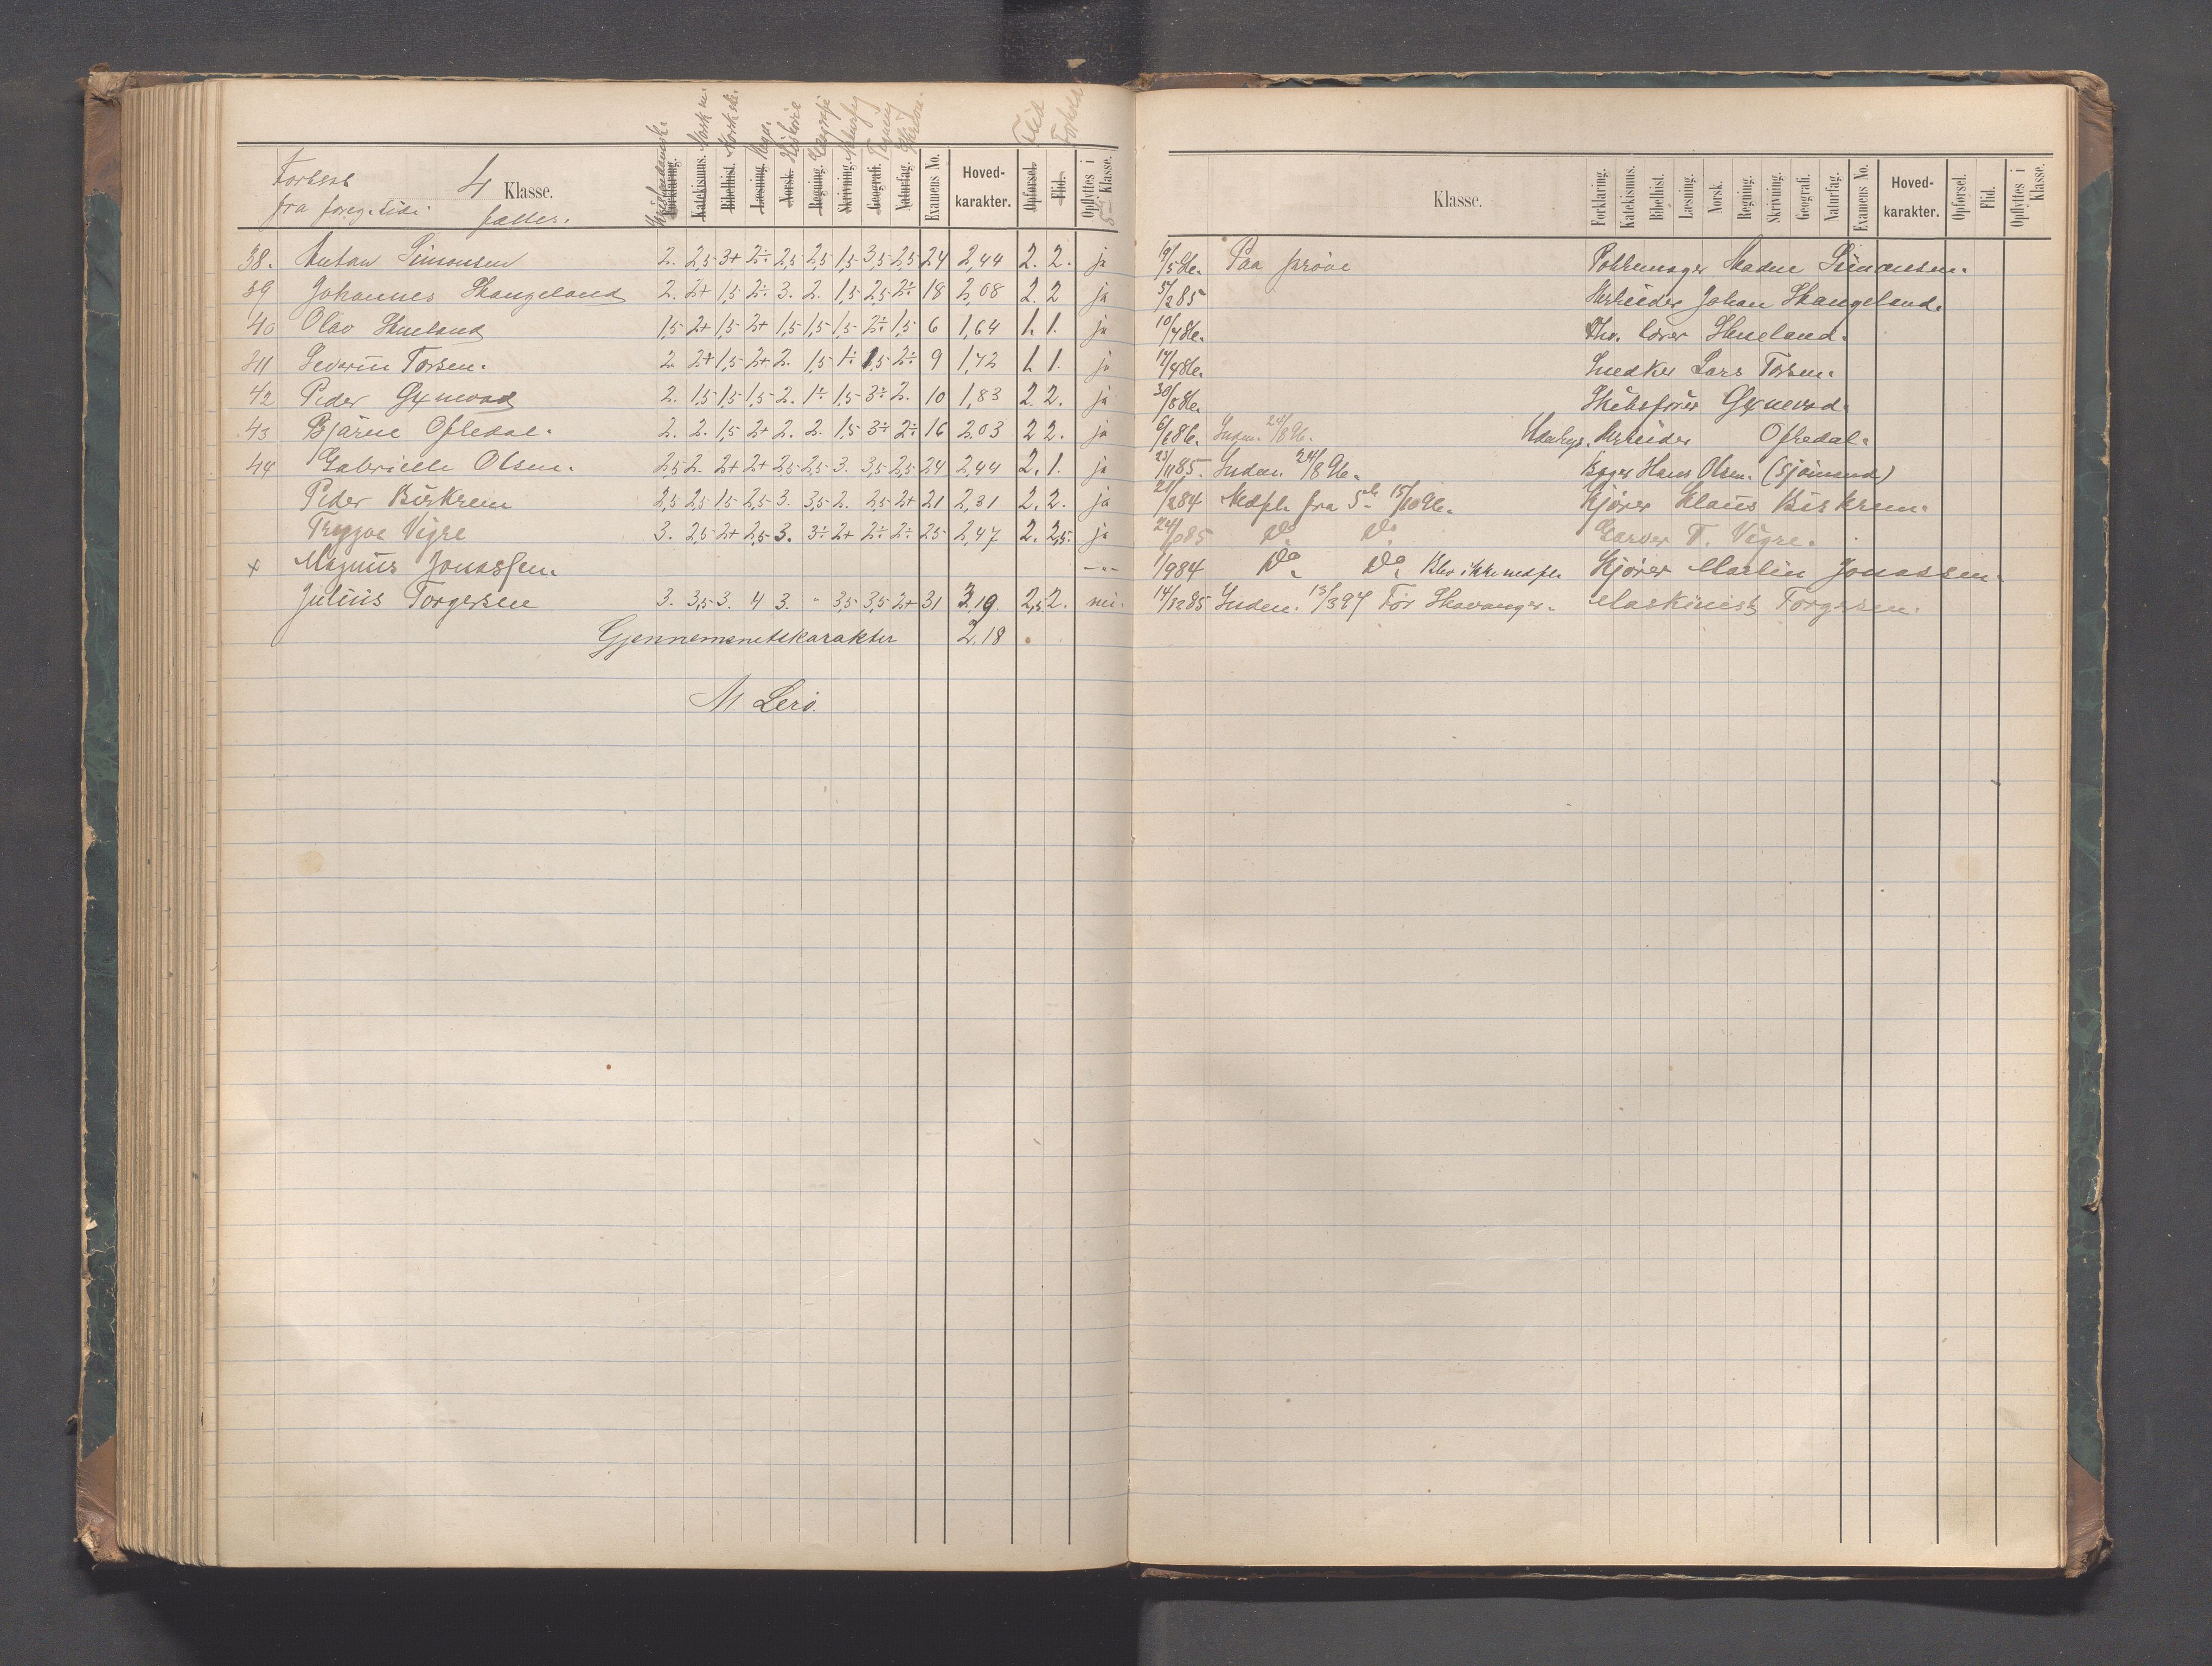 Fortsat
fra foreg. side.
4 Klasse.
Kristendomsk. Norsk m. Norsk sk. Regn. Historie Geografi Naturfag Tegning Skrivn. Flid Forhold
Forklaring. Katekismus. Bibelhist. Læsning. Norsk. Regning. Skrivning. Geografi. Naturfag. Examens No. Hoved-karakter. Opførsel. Flid. Opflyttes i 5te Klasse.
Klasse. Forklaring. Katekismus. Bibelhist. Læsning. Norsk. Regning. Skrivning. Geografi. Naturfag. Examens No. Hoved-karakter. Opførsel. Flid. Opflyttes i Klasse.
38. Anton Simonsen 2. 2,5 3+ 2÷ 2,5 2,5 1,5 3,5 2,5 24 2,44 2. 2. ja 19/5 86. Paa prøve Madme Simonsen.
39 Johannes Skangeland 2. 2+ 1,5 2÷ 3. 2. 1,5 2,5 2÷ 18 2,08 2. 2 ja 5/2 85 Arbeider Johan Skangeland.
40 Olav Skueland 1,5 2+ 1,5 2+ 1,5 1,5 1,5 2÷ 1,5 6 1,64 1. 1. ja 10/4 86. lærer Skueland.
41 Severin Torsen. 2. 2+ 1,5 2+ 2. 1,5 1÷ 1,5 2÷ 9 1,72 1. 1. ja 17/4 86. Snedker Lars Torsen.
42 Peder Gxnevad 2. 1,5 1,5 1,5 2. 1÷ 1,5 3÷ 2. 10 1,83 2. 2. ja 30/8 86. Skibsfører Gxnevad.
43 Bjarne Oftedal. 2. 2. 1,5 2+ 2. 2. 1,5 3÷ 2÷ 16 2.03 2 2. ja 6/6 86. Inden. 24/8 96. Arbeider Oftedal.
44 Gabrielle Olsen. 2,5 2. 2+ 2+ 2,5 2,5 3. 3,5 2,5 24 2,44 2. 1. ja 23/11 85. Inden. 24/8 96. Hans Olsen. (Sjømand)
Peder Birkrem 2,5 2,5 1,5 2,5 3. 3,5 2. 2,5 2+ 21 2,31 2. 2. ja 21/2 84 Nedfl. fra 5te 15/10 96. Kjører Klaus Birkrem.
Trygve Vigre 3. 2,5 2+ 2,5 3. 3÷ 2+ 2÷ 2÷ 25 2,47 2. 2,5. ja 24/8 85 Do Do Garver T. Vigre.
x Magnus Jonassen. -"- 1/9 84 Do Do Blev ikke nedfl. Kjører Martin Jonassen.
Julius Torgersen 3. 3,5 3. 4 3. - 3,5 3,5 2+ 31 3,19. 2,5 2. nei. 14/12 85 Inden. 13/3 97 Før Stavanger. Maskinist Torgersen.
Gjennemsnitskarakter 2.18
M Lerö.